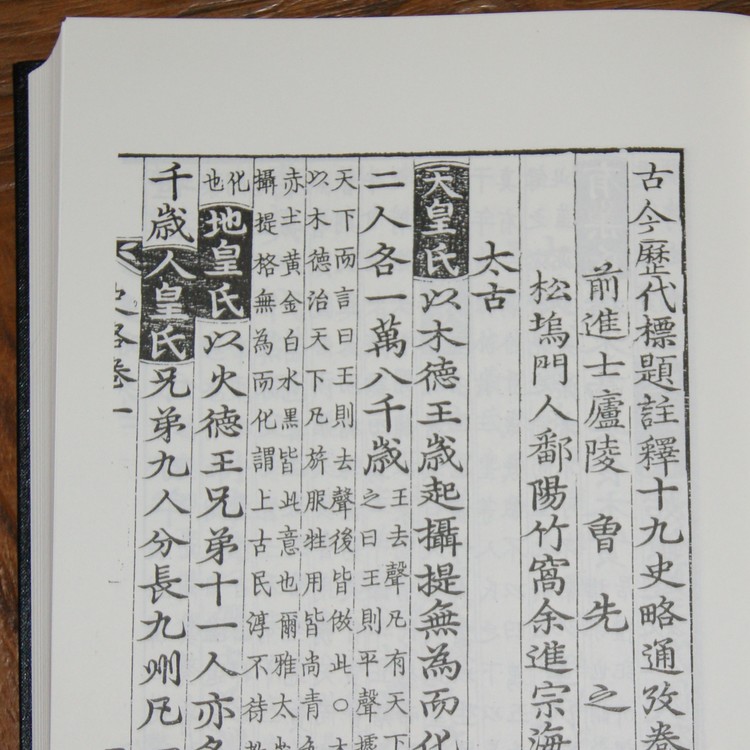 古今歷代標題註釋十九史略通攷卷
前進士廬陵 曾先之
松塢門人鄱陽竹窩余進宗海
太古
天皇氏以木德王歲起攝提無為而化
二人各一萬八千歲
王去聲凡有天下
之曰王則平聲據
天下而言曰王則去聲後皆倣此○木
以木德治天下凡旂服牲用皆尚青
赤土黃金白水黑皆此意也爾雅太
攝提格無為而化謂上古民淳不待
化
也
地皇氏以火德王兄弟十一人亦各
千歲人皇氏兄弟九人分長九州凡
史略卷一